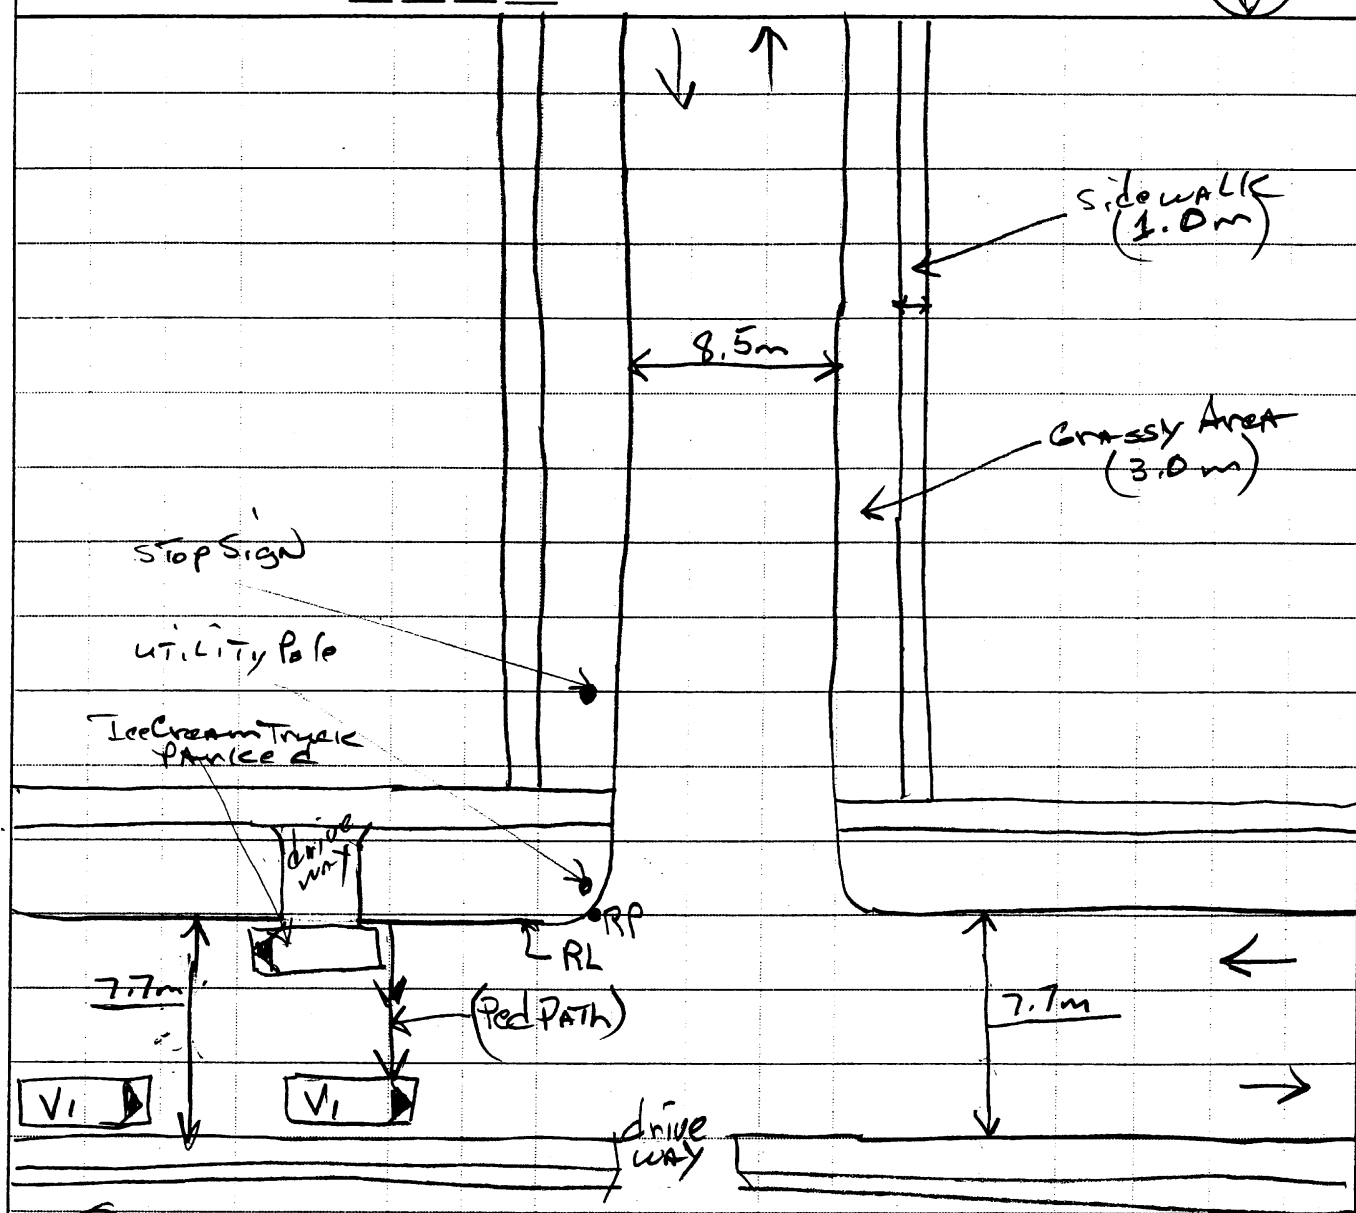 sidewalk
(1.0m)
8.5m
Grassy Area
(3.0m)
Stop Sign
Utility Pole
Ice Cream Truck
Parked
drive
way
RP
RL
7.7m
(Ped Path)
7.7m
V1
V1
drive
way